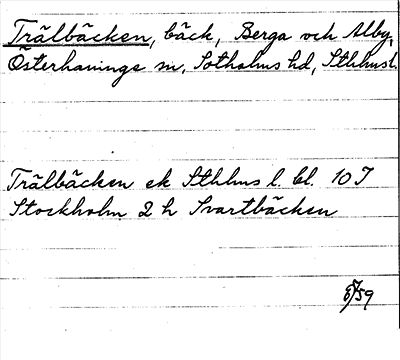 Trälbäcken, bäck, Berga och Alby,
Österhaninge sn, Sotholms hd, Sthlmsl.
Trälbäcken ek Sthlms l. bl. 10 I
Stockholm 2 h Svartbäcken